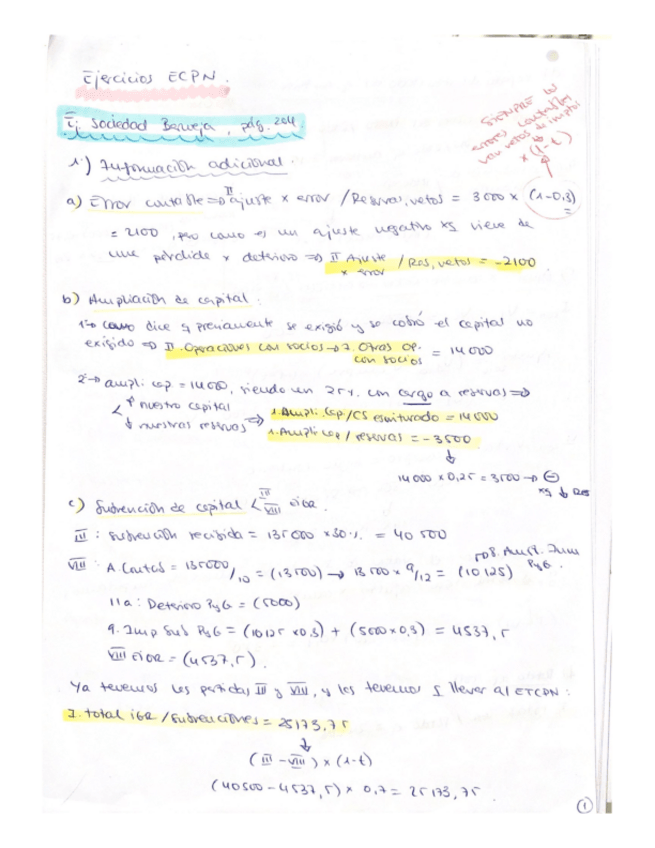 Ejercicios ECPN.
Ej. Sociedad Bermeja, pág. 204.
SIEMPRE los
errores contables
van netos de impto
x (1-t)
1.) Información adicional.
a) Error contable => II ajuste x error / Reservas, vetos = 3000 x (1-0,3)
= 2100, pero como es un ajuste negativo xq viene de
una pérdida x deterioro => II Ajuste x error / Res, vetos = -2100
b) Ampliación de capital:
1º-> como dice q previamente se exigió y se cobró el capital no
exigido => II. Operaciones con socios -> 7. Otras op. con socios = 14 000
2º-> ampli cap = 14000, siendo un 25%. con cargo a reservas =>
< ↑ nuestro capital
↓ nuestras reservas => 1. Ampli. Cap/CS escriturado = 14 000
1. Ampli cap / reservas = -3500
↓
14 000 x 0,25 = 3500 -> (-)
xq ↓ Res
c) Subvención de capital < III VIII EIGR.
III: Subvención recibida = 135 000 x 30%. = 40 500
VIII: A. Cuotas = 135000/10 = (13500) -> 13 500 x 9/12 = (10 125) -> 8. Am. Inm PyG.
11a: Deterioro PyG = (5000)
9. Imp Sub PyG = (10125 x 0,3) + (5000 x 0,3) = 4537,5
VIII EIGR = (4537,5).
Ya tenemos las partidas III y VIII, y las tenemos q llevar al ETCPN:
I. total i6R / Subvenciones = 25173,75
↓
(III - VIII) x (1-t)
(40500 - 4537,5) x 0,7 = 25 173,75
1